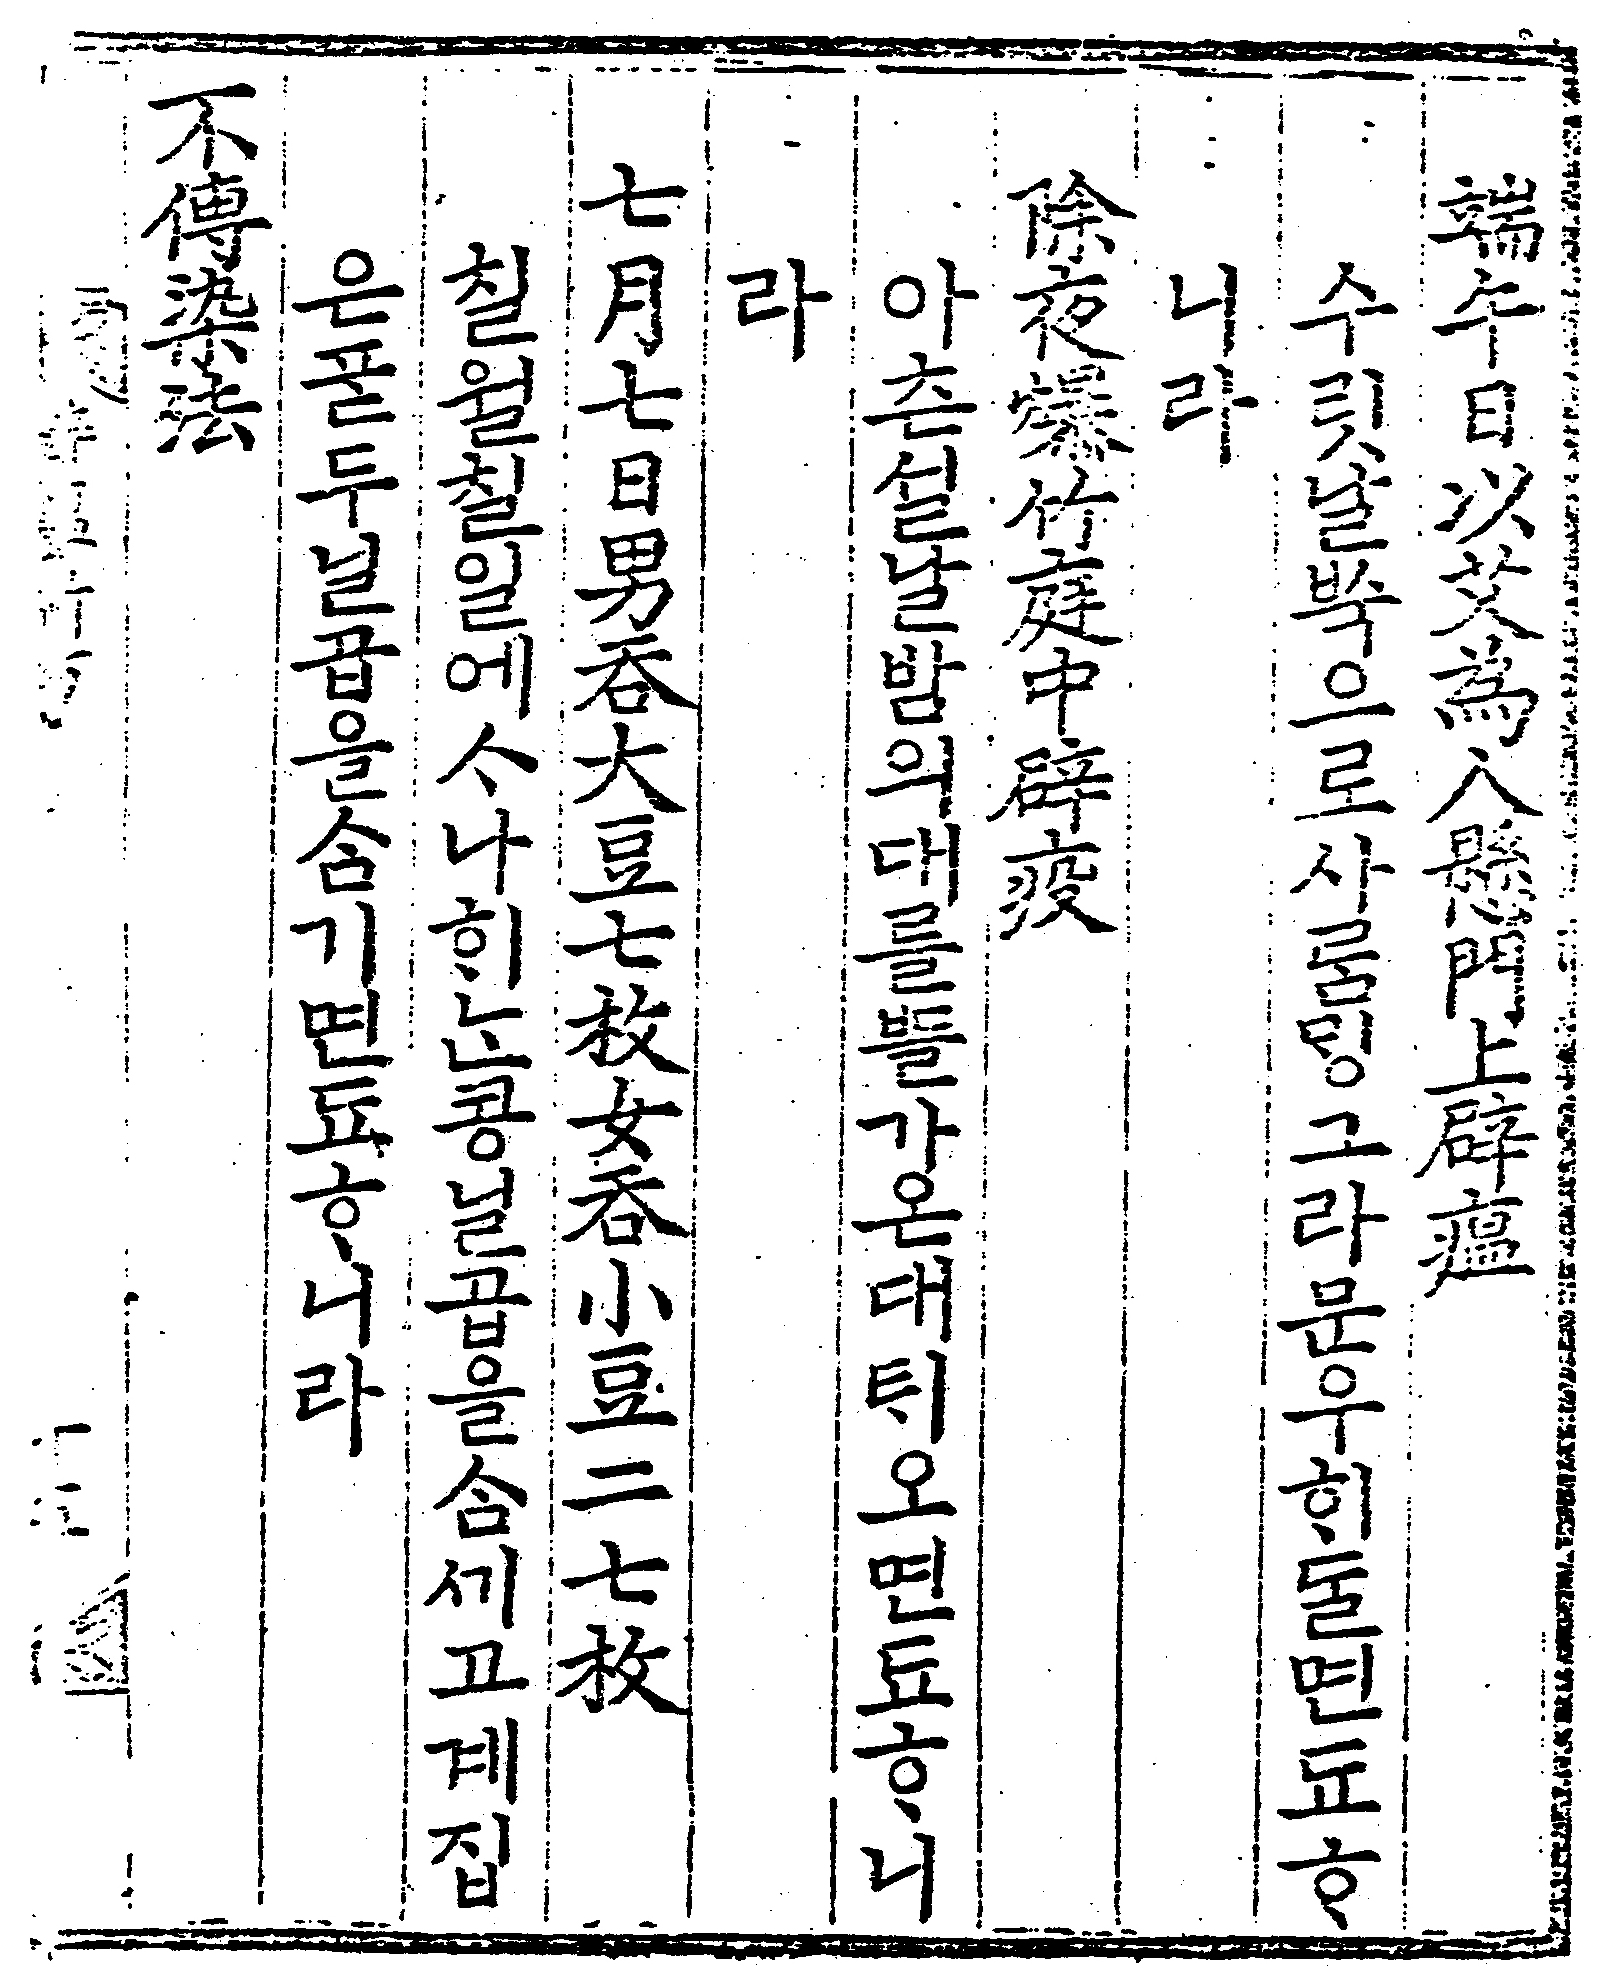 端午日以艾爲人懸門上辟瘟
수릿날ᄡᅮᆨ으로사ᄅᆞᆷᄆᆡᆼ그라문우ᄒᆡᄃᆞᆯ면됴ᄒᆞ
니라
除夜爆竹庭中辟疫
아ᄎᆞᆫ설날밤의대ᄅᆞᆯᄠᅳᆯ가온대ᄐᆡ오면됴ᄒᆞ니
라
七月七日男呑大豆七枚女呑小豆二七枚
칠월칠일에ᄉᆞ나ᄒᆡᄂᆞᆫ콩닐곱을ᄉᆞᆷ세고계집
은ᄑᆞᆯ두닐곱을ᄉᆞᆷ기면됴ᄒᆞ니라
不傳染法